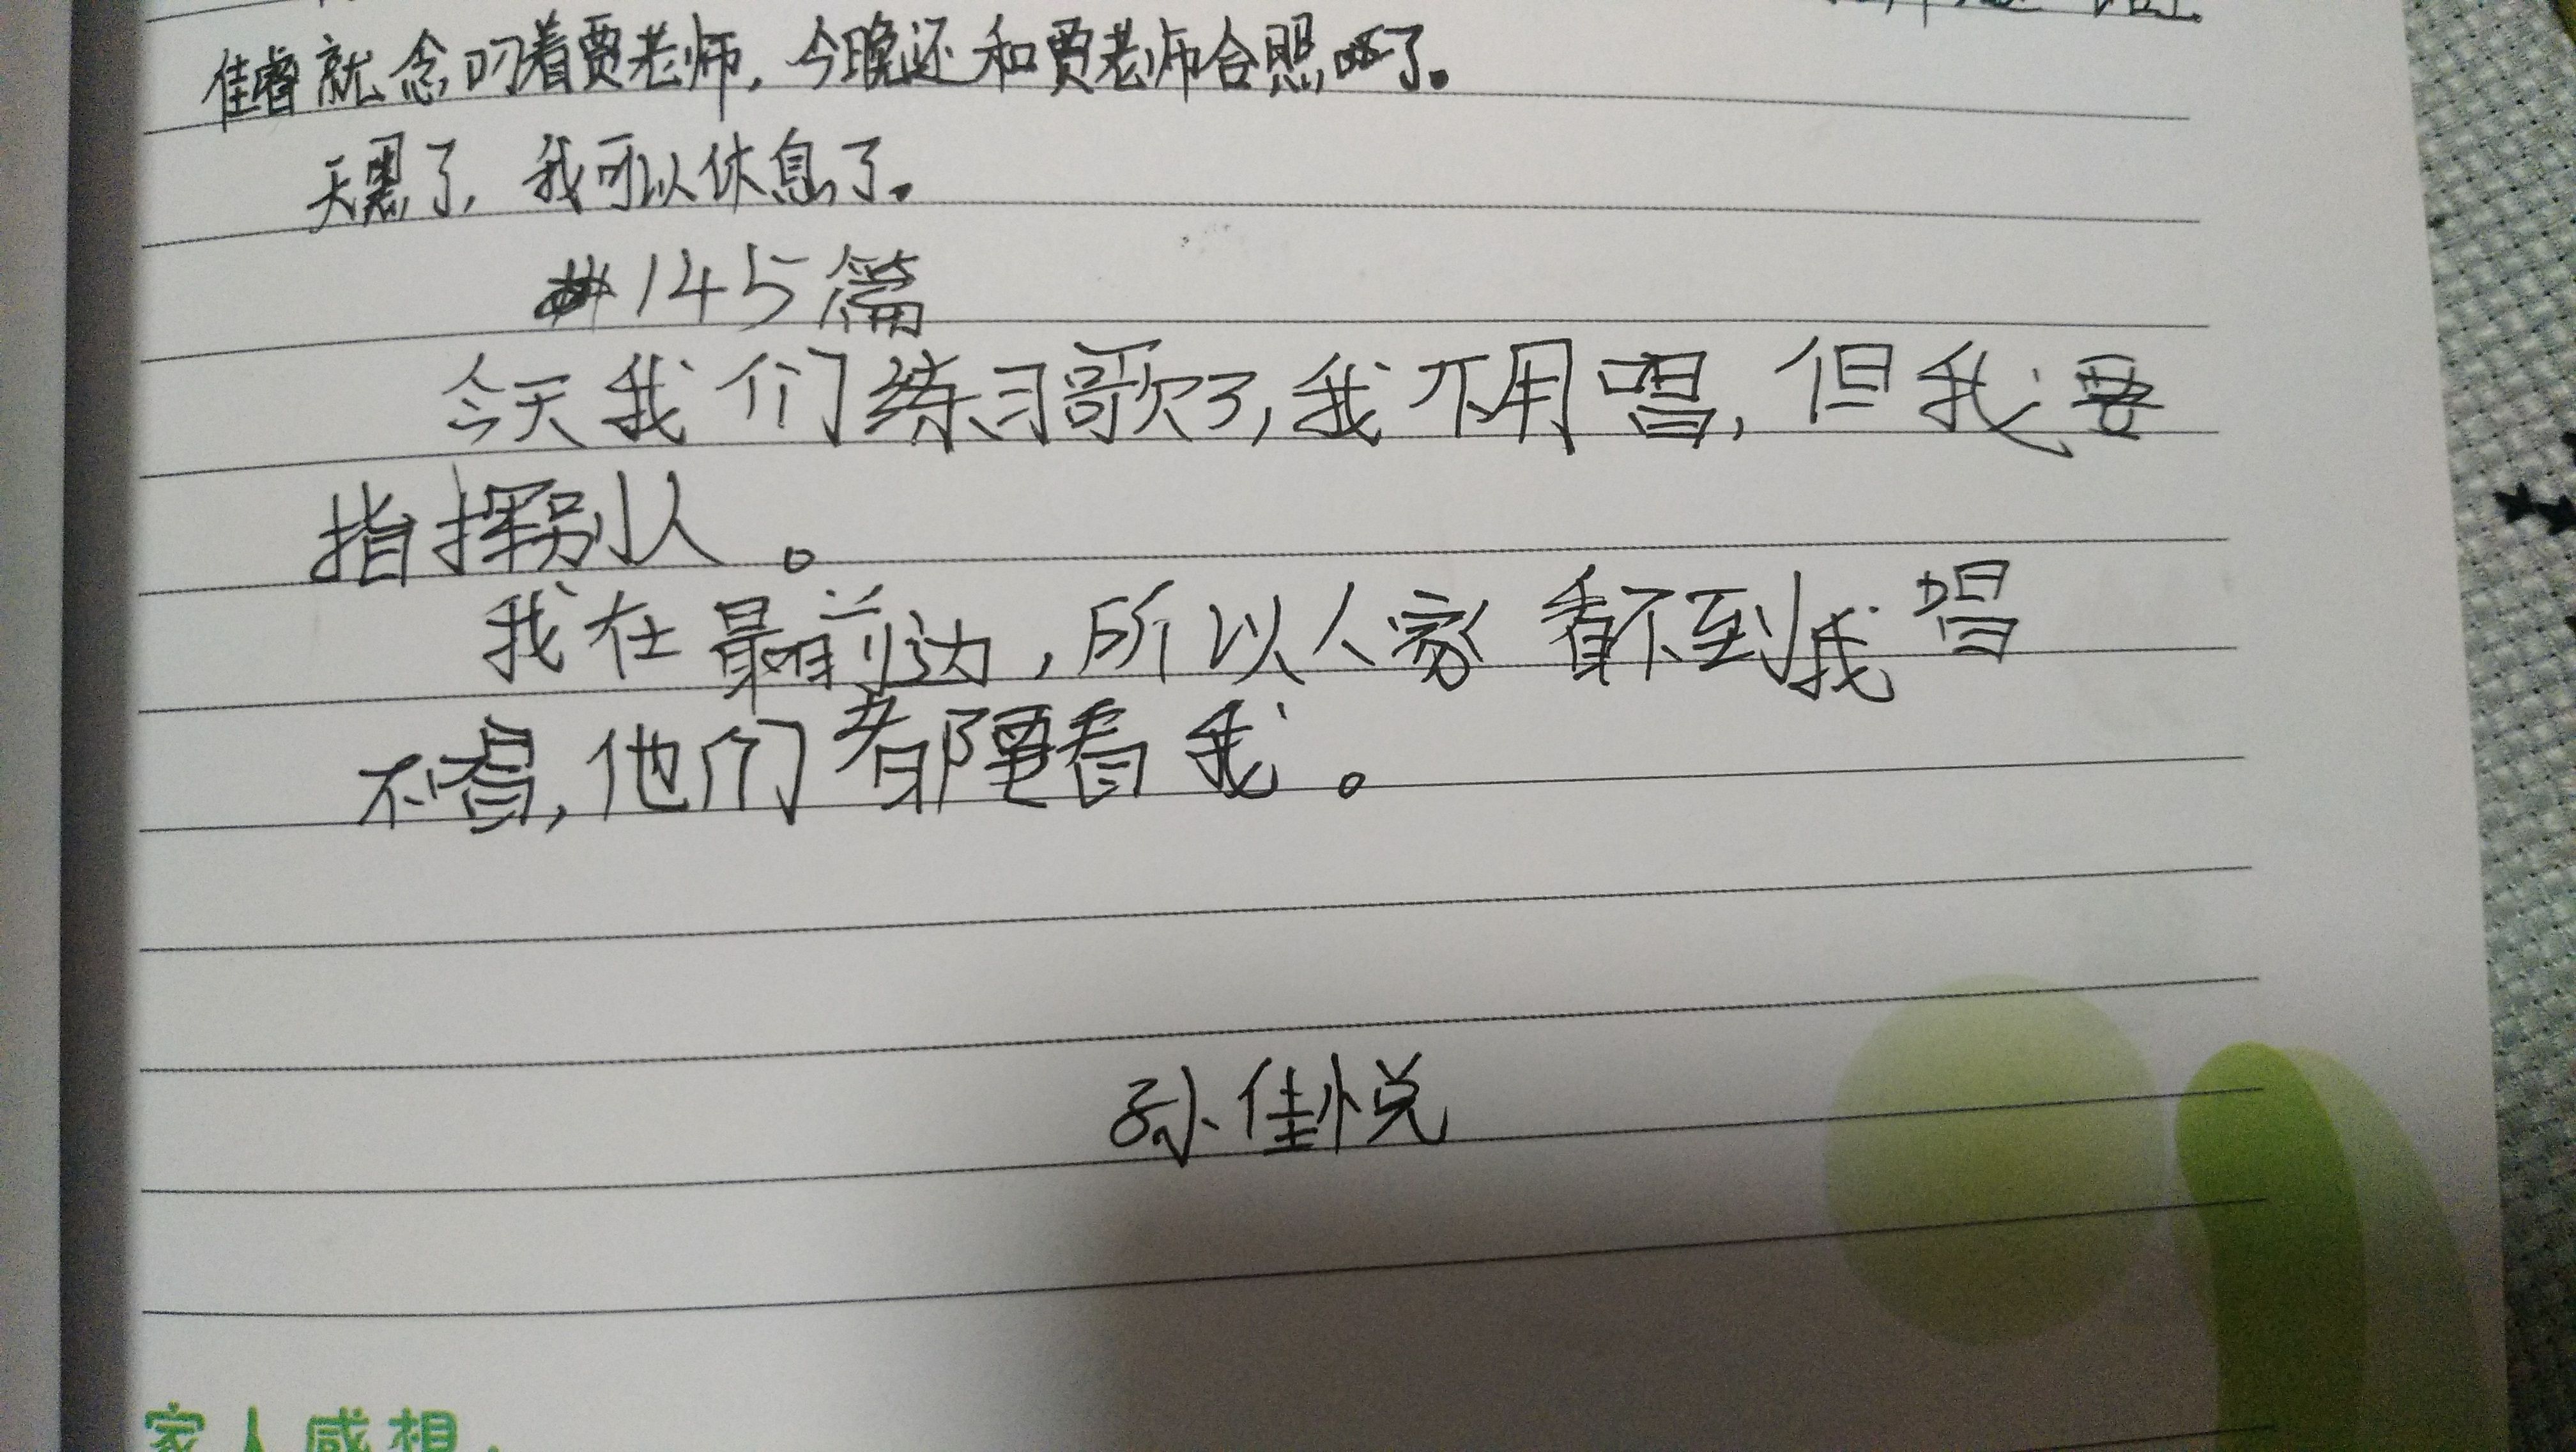 佳睿就念叨着贾老师，今晚还和贾老师合照了。
天黑了，我可以休息了。
145篇
今天我们练习歌了，我不用唱，但我要
指挥别人。
我在最前边，所以人家看不到我唱
不唱，他们都要看我。
孙佳悦
家人感想：